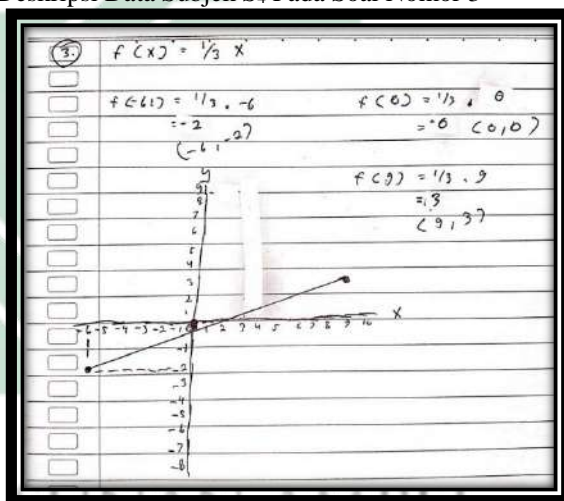 Deskripsi Data Subjek S4 Pada Soal Nomor 3
3. f(x) = 1/3 x
f(-6) = 1/3 . -6
= -2
(-6, -2)
f(0) = 1/3 . 0
= 0 (0,0)
f(9) = 1/3 . 9
= 3
(9,3)
y
9
8
7
6
5
4
3
2
1
-6 -5 -4 -3 -2 -1 0 1 2 3 4 5 6 7 8 9 10 x
-1
-2
-3
-4
-5
-6
-7
-8